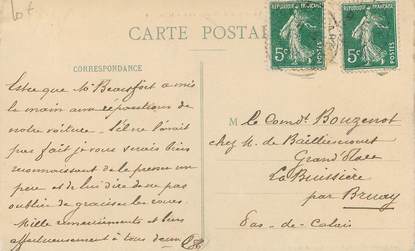 CARTE POSTALE
RÉPUBLIQUE FRANÇAISE
5c
POSTES
RÉPUBLIQUE FRANÇAISE
5c
POSTES
CORRESPONDANCE
Est ce que Mr Beaufort a mis
la main aux réparations de
notre voiture. S'il ne l'avait
pas fait je vous serais bien
reconnaissant de la presser un
peu et de lui dire de ne pas
oublier de graisser les roues.
Mille remerciements et bien
affectueusement à tous deux
M le Comdt Bouzenot
chez M. de Bailliencourt
Grand'Place
La Buissière
par Bruay
Pas-de-Calais